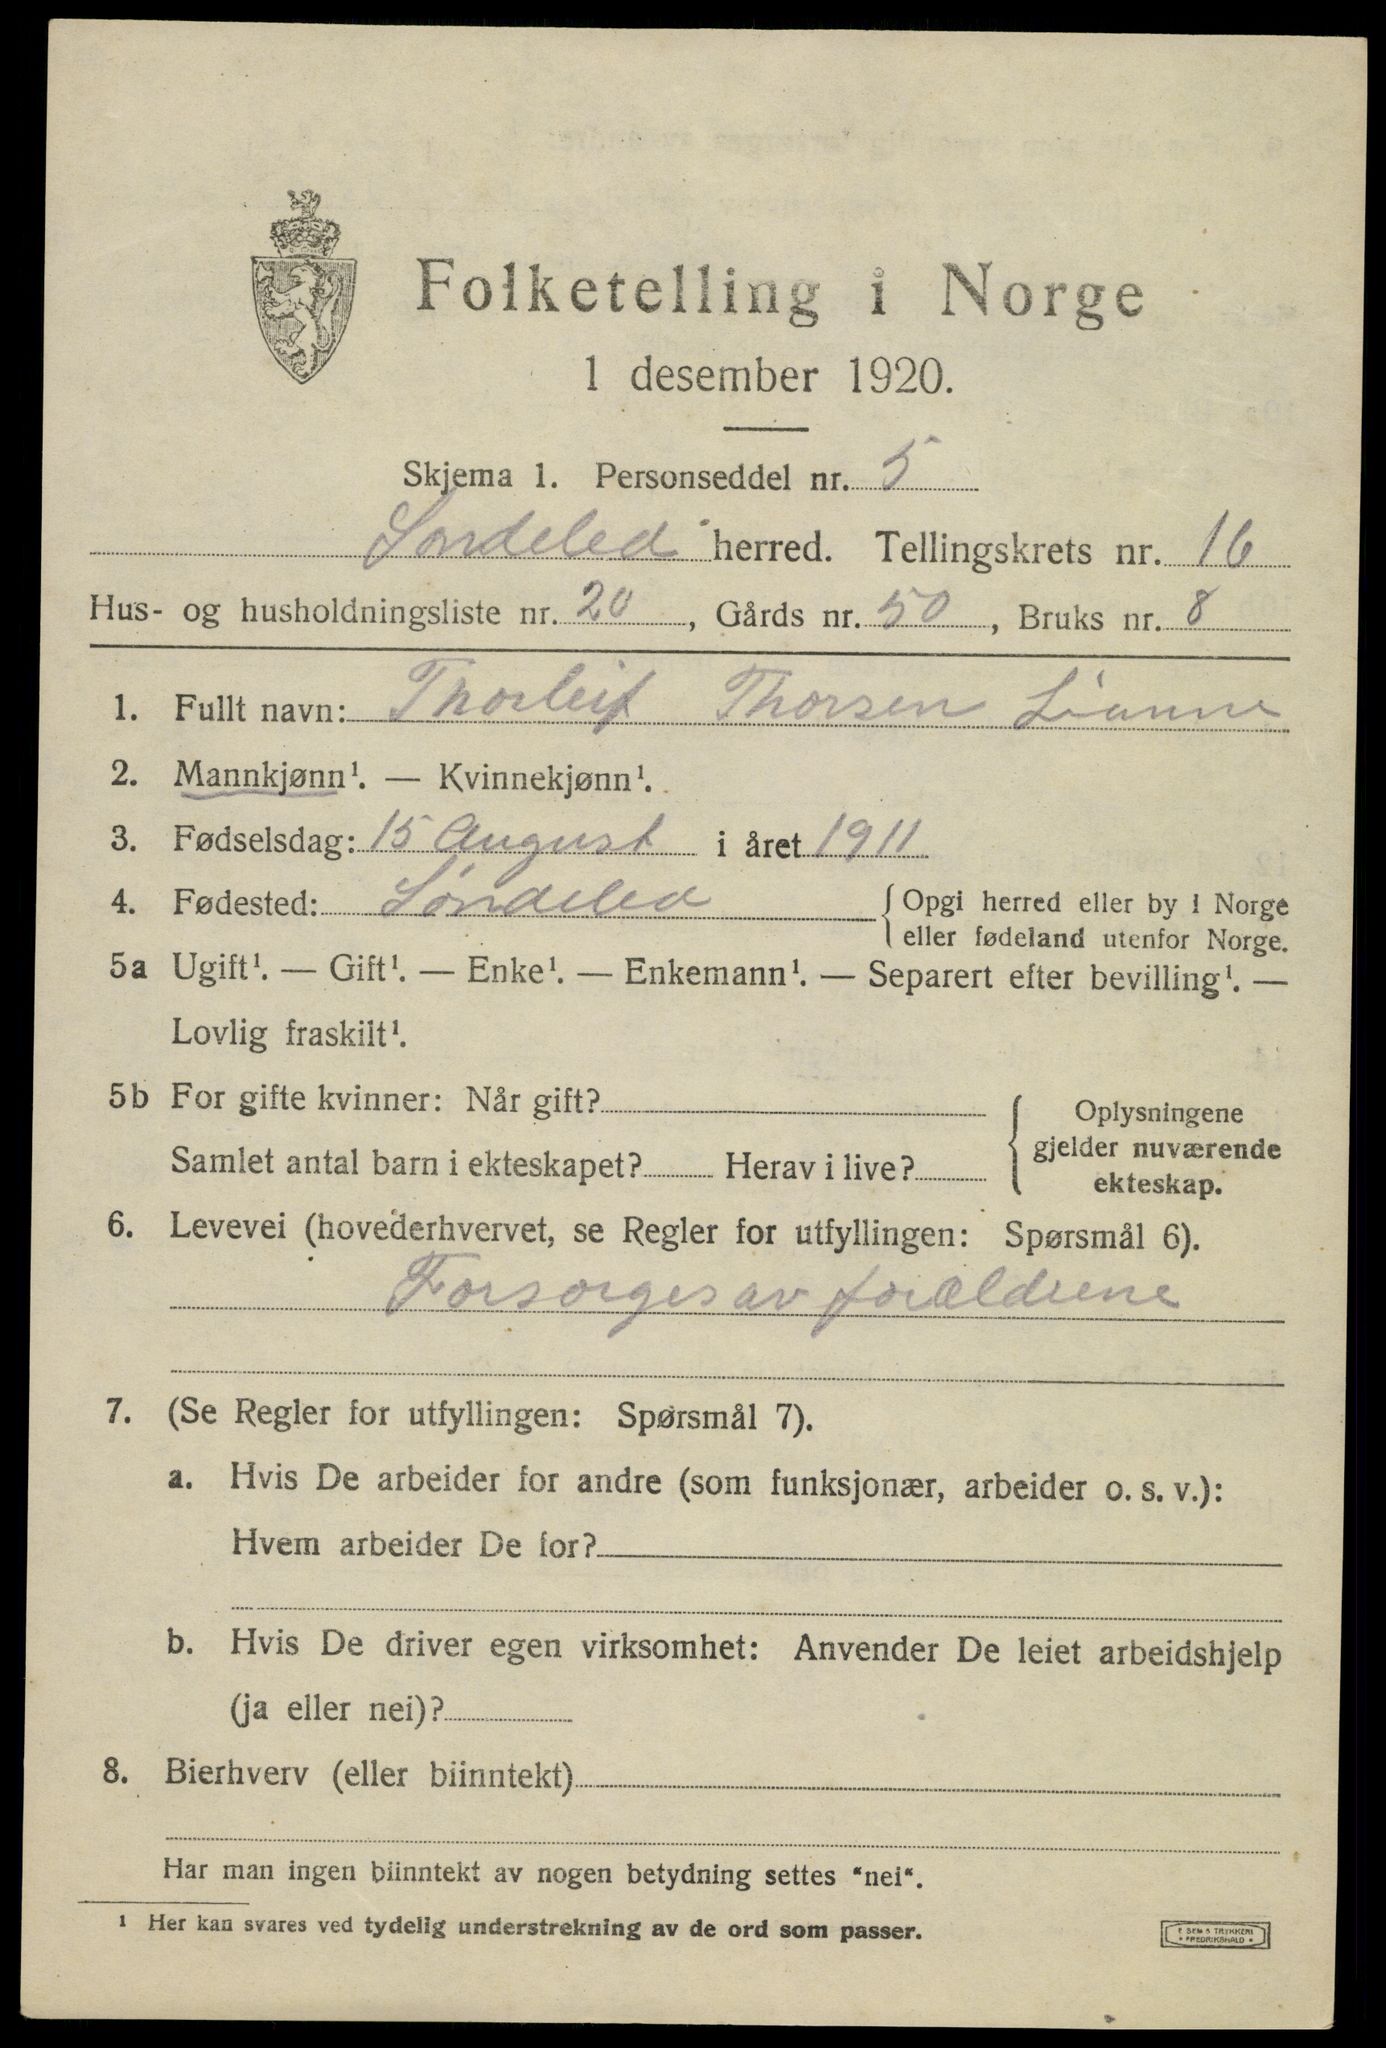 Folketelling i Norge
1 desember 1920.
Skjema 1. Personseddel nr. 5
Søndeled herred. Tellingskrets nr. 16
Hus- og husholdningsliste nr. 20, Gårds nr. 50, Bruks nr. 8
1. Fullt navn: Thorleif Thorsen
2. Mannkjønn¹. — Kvinnekjønn¹.
3. Fødselsdag: 15 August i året 1911
4. Fødested: Søndeled { Opgi herred eller by i Norge
eller fødeland utenfor Norge.
5a Ugift¹. — Gift¹. — Enke¹. — Enkemann¹. — Separert efter bevilling¹. —
Lovlig fraskilt¹.
5b For gifte kvinner: Når gift?
Samlet antal barn i ekteskapet? Herav i live?
{ Oplysningene
gjelder nuværende
ekteskap.
6. Levevei (hovederhvervet, se Regler for utfyllingen: Spørsmål 6).
Forsorges av forældrene
7. (Se Regler for utfyllingen: Spørsmål 7).
a. Hvis De arbeider for andre (som funksjonær, arbeider o. s. v.):
Hvem arbeider De for?
b. Hvis De driver egen virksomhet: Anvender De leiet arbeidshjelp
(ja eller nei)?
8. Bierhverv (eller biinntekt)
Har man ingen biinntekt av nogen betydning settes "nei".
¹ Her kan svares ved tydelig understrekning av de ord som passer.
SEM & TRYKKERI
FREDRIKSHALD